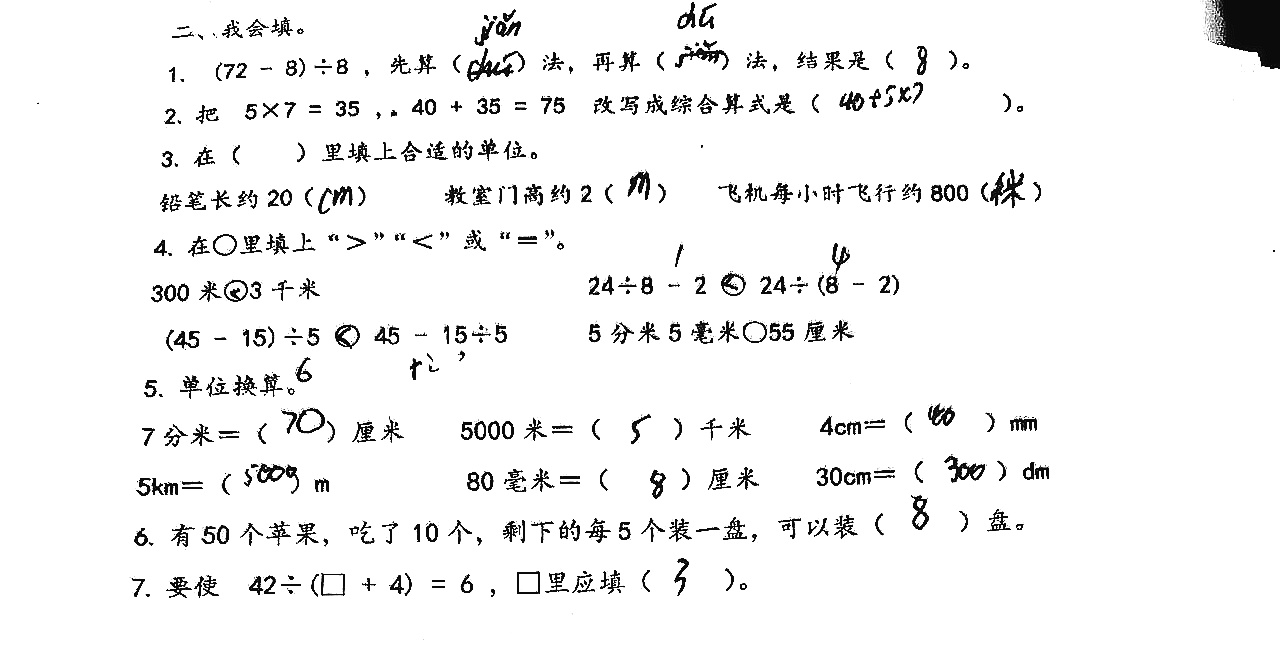 二、我会填。
jiǎn chú
1. (72 - 8)÷8 , 先算( )法, 再算( )法, 结果是( 8 )。
2. 把 5×7 = 35 , 40 + 35 = 75 改写成综合算式是( 40+5×7 )。
3. 在( )里填上合适的单位。
铅笔长约20(cm) 教室门高约2( m ) 飞机每小时飞行约800( )
4. 在○里填上“>”“<”或“=”。
1 4
300米<3千米 24÷8 - 2 < 24÷(8 - 2)
(45 - 15)÷5 < 45 - 15÷5 5分米5毫米○55厘米
6
5. 单位换算。
7分米=( 70 )厘米 5000米=( 5 )千米 4cm=( 40 )mm
5km=( 5000 )m 80毫米=( 8 )厘米 30cm=( 300 )dm
6. 有50个苹果, 吃了10个, 剩下的每5个装一盘, 可以装( 8 )盘。
7. 要使 42÷(□ + 4) = 6 , □里应填( 3 )。